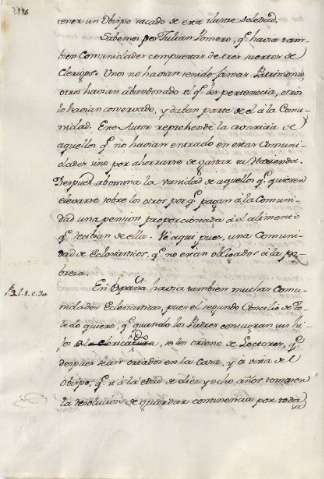 tener un Obispo sacado de esta ilustre soledad.
Sabemos por Julian Pomero, q.e havia tam-
bien Comunidades compuestas de tres suertes de
Clerigos. Unos no havian tenido jamas Patrimonio
otros havian abandonado el q.e les pertenecia, otros
lo havian conservado, y daban parte de el á la Comu-
nidad. Este Autor reprehende la avaricia de
aquellos q.e no havian entrado en estas Comuni-
dades sino por ahorrarse de gastar su Hacienda.
Despues abomina la vanidad de aquellos q.e quieren
elevarse sobre los otros por q.e pagan á la Comuni-
dad una pension proporcionada á el alimento
q.e reciban de ella. He aqui pues, una Comuni-
dad de Eclesiasticos, q.e no eran obligados á la po-
breza.
En España havia tambien muchas Comu-
nidades Eclesiasticas, pues el segundo Concilio de To-
ledo quiere, q.e quando los Padres consagran sus hi-
jos, se les ordene de Lectores, q.e
despues sean criados en la Casa, y á vista de el
Obispo, q.e á la edad de diez y ocho años tomaren
la resolucion de guardar continencia por toda